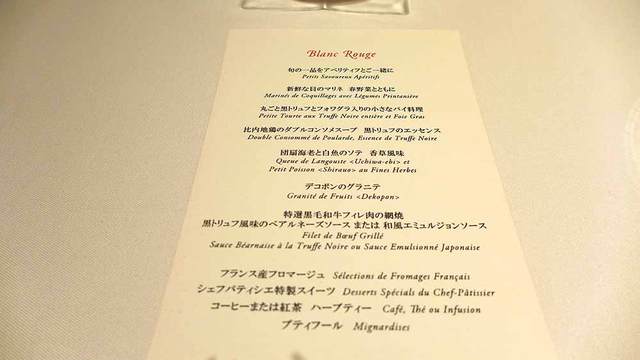 Blanc Rouge
旬の一品をアペリティフとご一緒に
Petits Savoureux Apéritifs
新鮮な貝のマリネ 春野菜とともに
Marinés de Coquillages avec Légumes Printanière
丸ごと黒トリュフとフォワグラ入りの小さなパイ料理
Petite Tourte aux Truffe Noire entière et Foie Gras
比内地鶏のダブルコンソメスープ 黒トリュフのエッセンス
Double Consommé de Poularde, Essence de Truffe Noire
団扇海老と白魚のソテ 香草風味
Queue de Langouste <Uchiwa-ebi> et
Petit Poisson <Shirauo> au Fines Herbes
デコポンのグラニテ
Granité de Fruits <Dekopon>
特選黒毛和牛フィレ肉の網焼
黒トリュフ風味のベアルネーズソース または 和風エミュルジョンソース
Filet de Bœuf Grillé
Sauce Béarnaise à la Truffe Noire ou Sauce Emulsionné Japonaise
フランス産フロマージュ Sélections de Fromages Français
シェフパティシエ特製スイーツ Desserts Spécials du Chef-Pâtissier
コーヒーまたは紅茶 ハーブティー Café, Thé ou Infusion
プティフール Mignardises